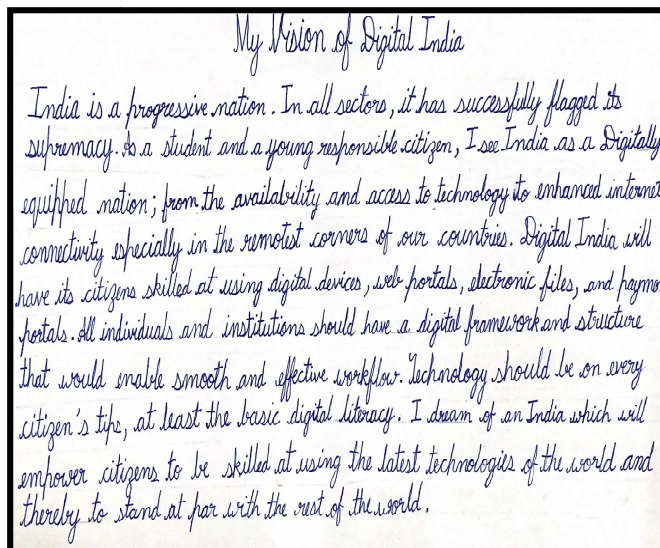 My Vision of Digital India
India is a progressive nation. In all sectors, it has successfully flagged its
supremacy. As a student and a young responsible citizen, I see India as a Digitally
equipped nation; from the availability and access to technology to enhanced internet
connectivity especially in the remotest corners of our countries. Digital India will
have its citizens skilled at using digital devices, web portals, electronic files, and
portals. All individuals and institutions should have a digital framework and structure
that would enable smooth and effective workflow. Technology should be on every
citizen's tips, at least the basic digital literacy. I dream of an India which will
empower citizens to be skilled at using the latest technologies of the world and
thereby to stand at par with the rest of the world.